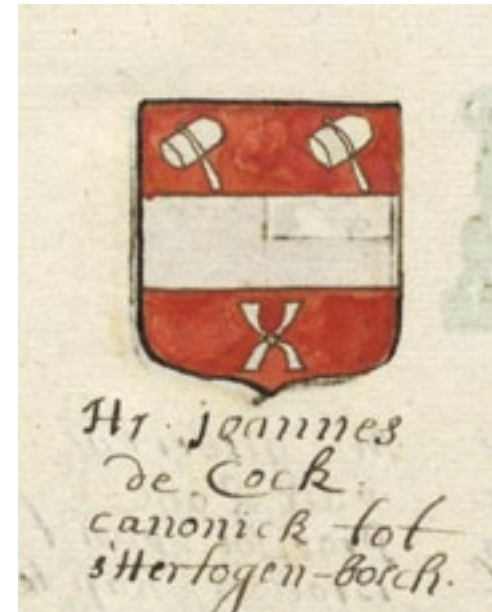 Hr. joannes
de Cock.
canonick tot
s'Hertogen-bosch.